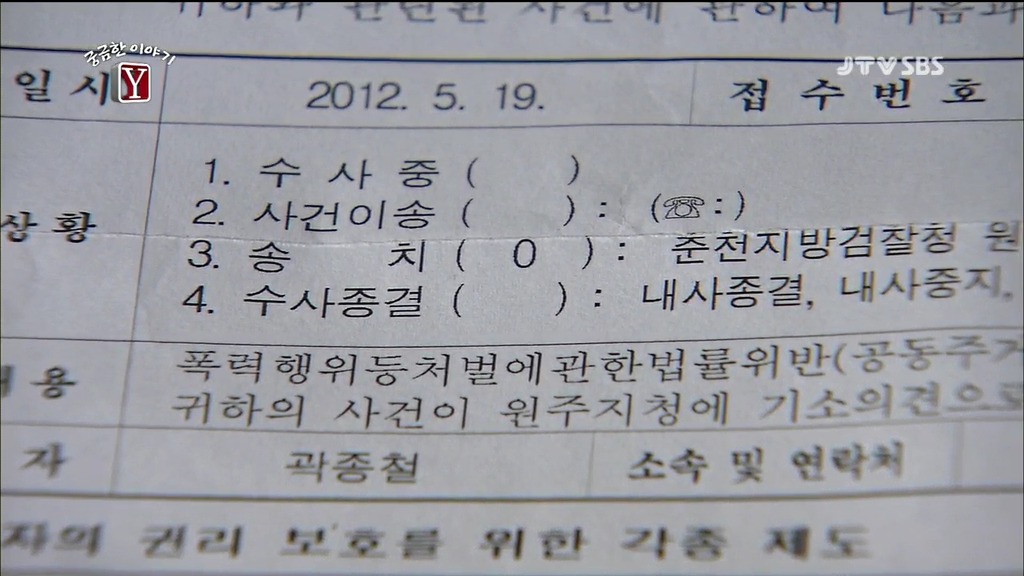 귀하와 관련된 사건에 관하여 다음과
궁금한 이야기
Y
JTV SBS
일 시 2012. 5. 19. 접 수 번 호
상 황
1. 수 사 중 ( )
2. 사건이송 ( ) : (☏:)
3. 송 치 ( O ) : 춘천지방검찰청 원
4. 수사종결 ( ) : 내사종결, 내사중지,
용 폭력행위등처벌에관한법률위반(공동주거
귀하의 사건이 원주지청에 기소의견으로
자 곽종철 소속 및 연락처
자의 권리 보호를 위한 각종 제도